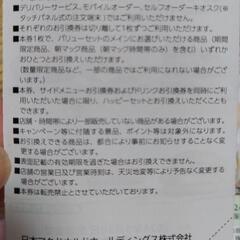 ■デリバリーサービス、モバイルオーダー、セルフオーダーキオスク(※
タッチパネル式の注文端末)ではご利用いただけません。
■それぞれのお引換券は切り離して1枚ずつご利用いただけます。
■本券1枚で、バリューセットのメインにお選びいただける商品(期間
限定商品、朝マック商品(朝マック時間帯のみ)を含む)いずれ
かひとつとお引換えいただけます。
(数量限定商品など、一部の商品ではご利用になれない場合が
ございます。)
■本券、サイドメニューお引換券およびドリンクお引換券を同時にご利
用いただいた場合に限り、ハッピーセットとお引換えいただくことも
できます。
■店舗・時間等により一部販売していない商品がある場合がございます。
■キャンペーン等に付随する景品、ポイント等は対象外になります。
■お引換えできる商品は、都合により事前にお知らせすることなく変
更する場合がございます。
■表面記載の有効期限を過ぎた場合はお引換えできません。
■店舗の営業日及び営業時刻は、天災地変等により予告なく変更す
る場合がございます。
■本券は転売禁止とさせていただいております。
日本マクドナルドホールディングス株式会社